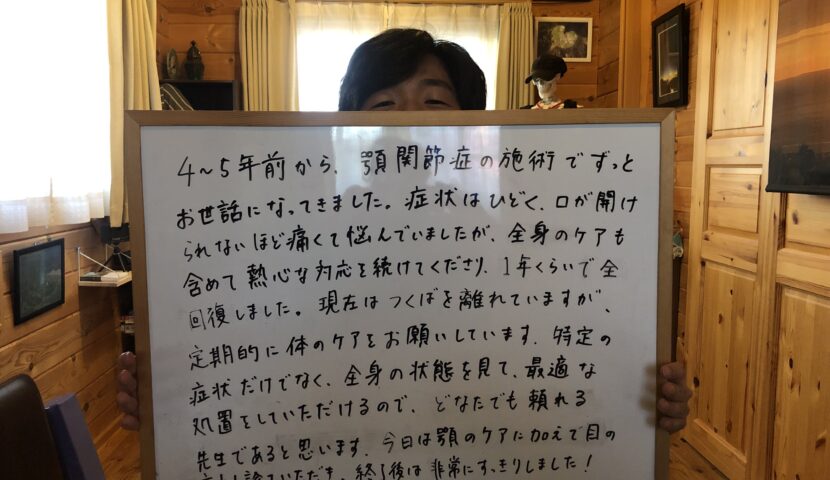 4〜5年前から、顎関節症の施術でずっと
お世話になってきました。症状はひどく、口が開け
られないほど痛くて悩んでいましたが、全身のケアも
含めて熱心な対応を続けてくださり、1年くらいで全
回復しました。現在はつくばを離れていますが、
定期的に体のケアをお願いしています。特定の
症状だけでなく、全身の状態を見て、最適な
処置をしていただけるので、どなたでも頼れる
先生であると思います。今日は顎のケアに加えて目の
診ていただき、終了後は非常にすっきりしました！